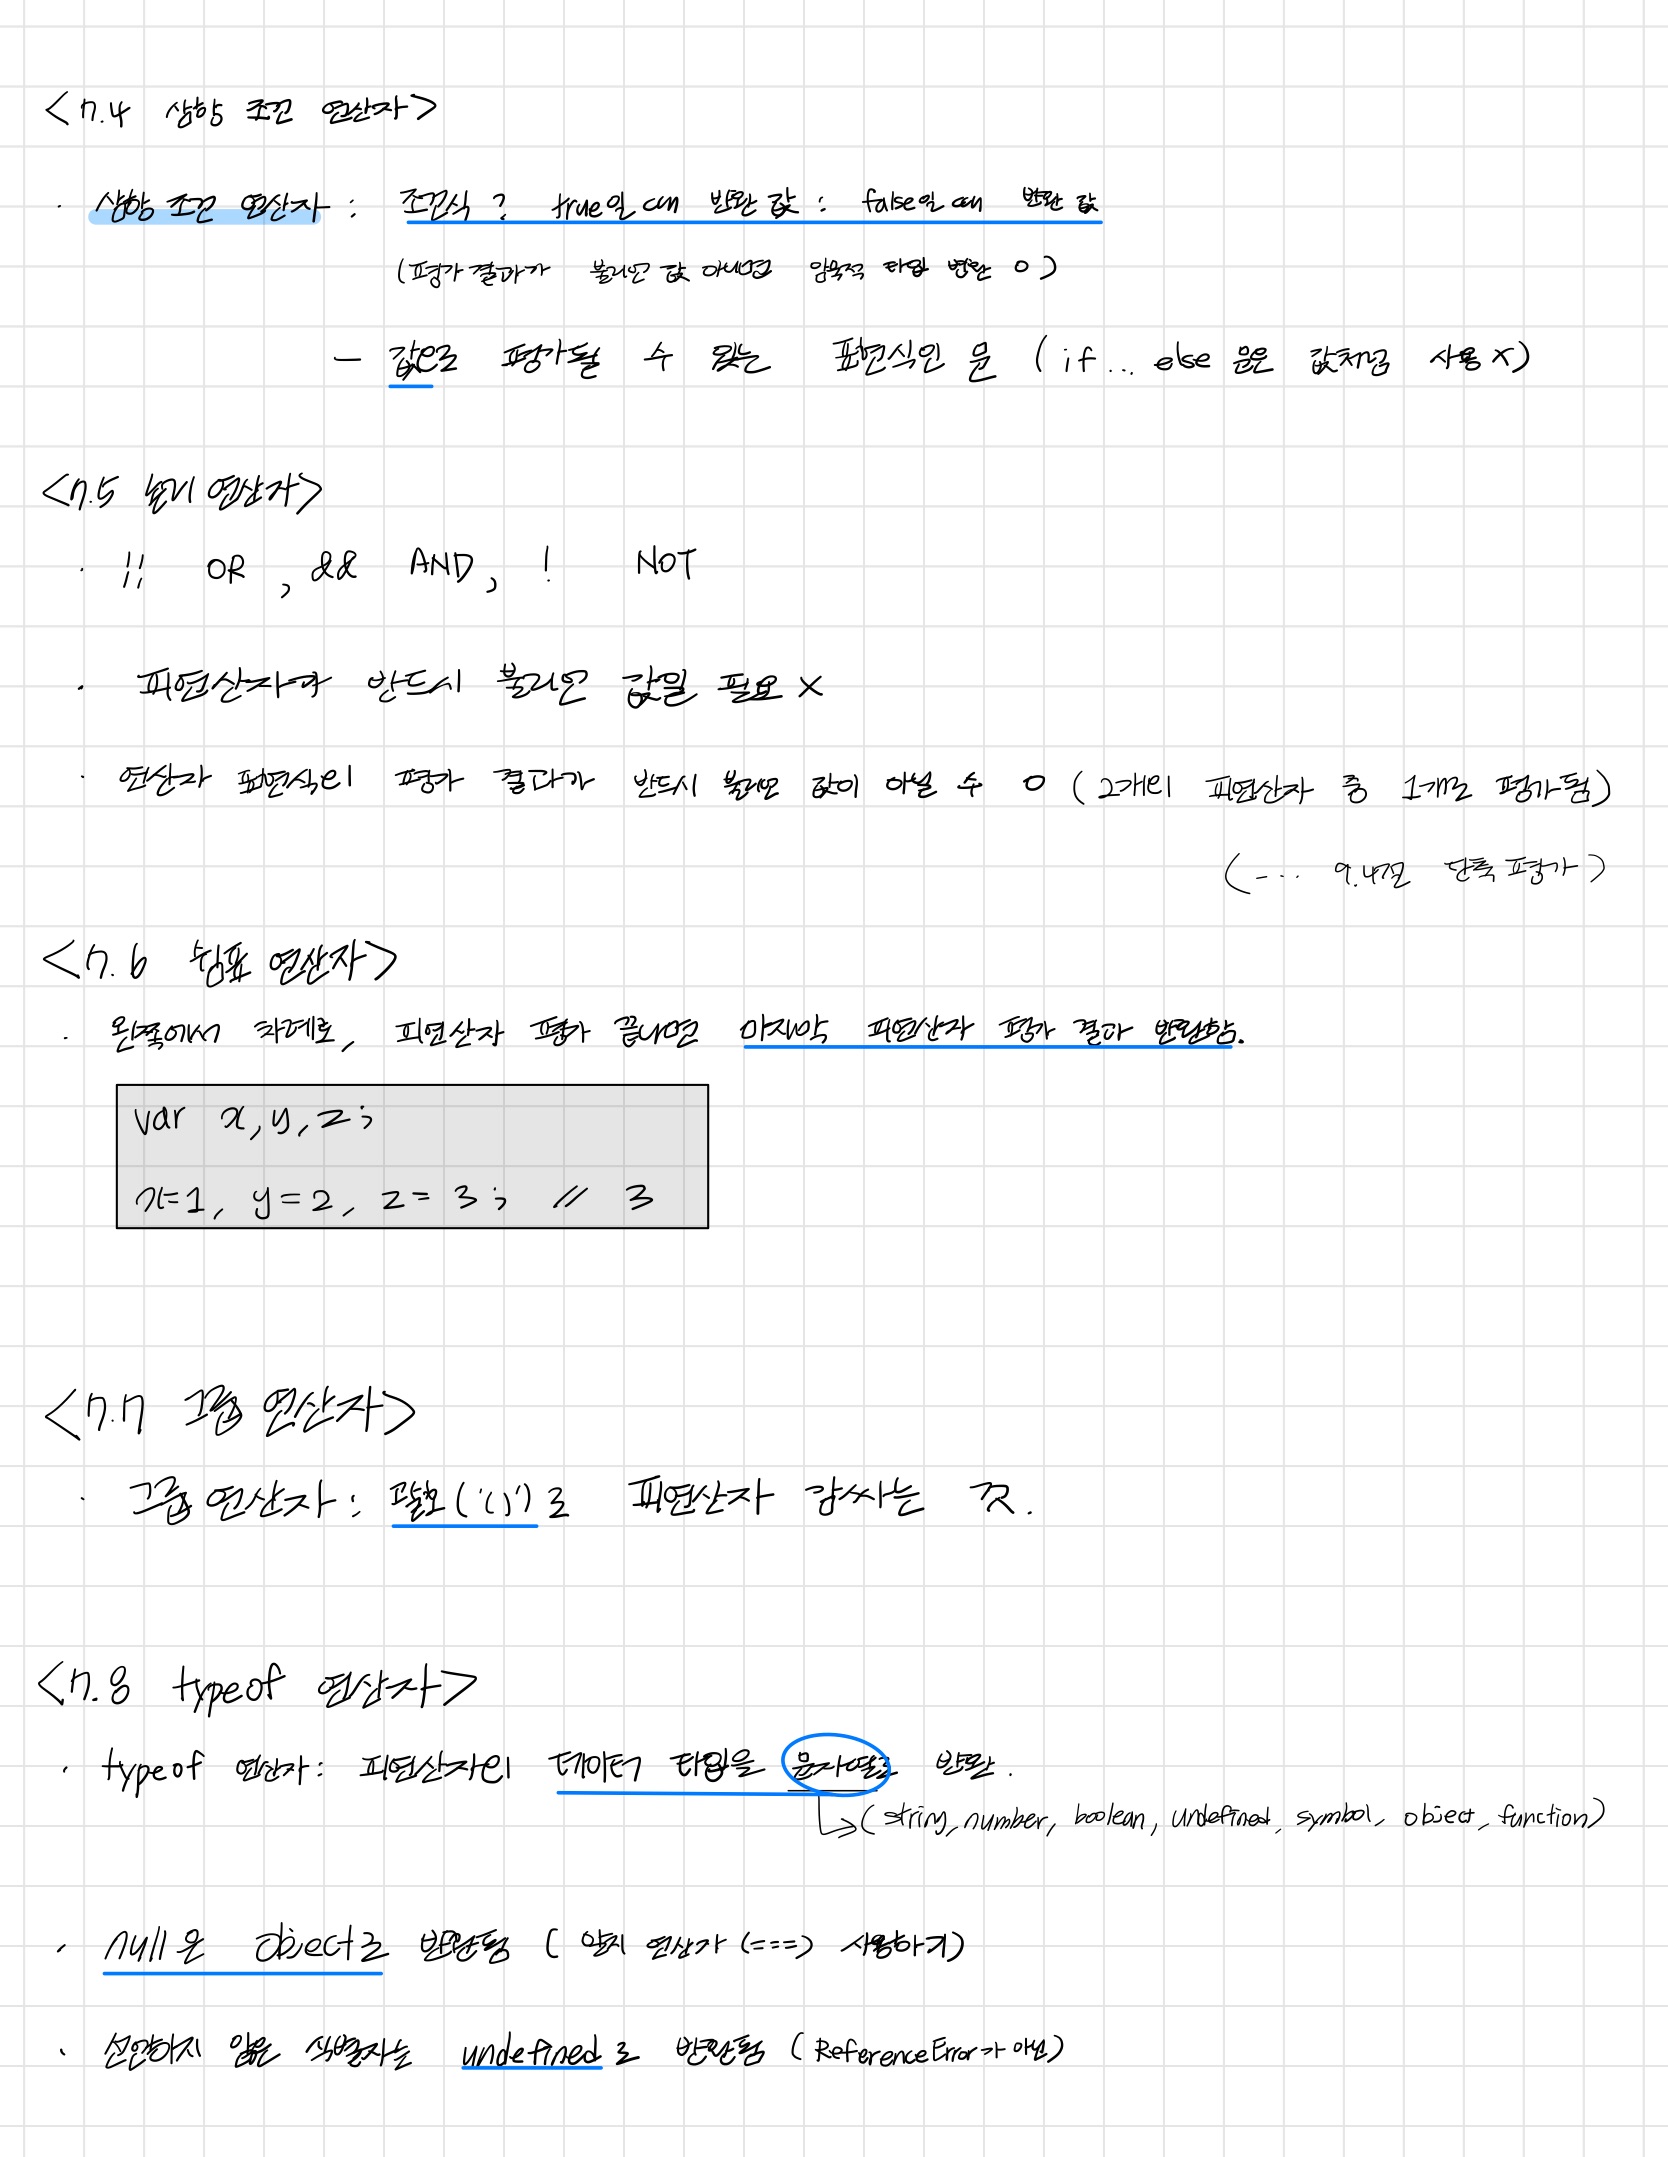 <7.4 삼항 조건 연산자>
· 삼항 조건 연산자 : 조건식 ? true일 때 반환 값 : false일 때 반환 값
(평가 결과가 불리언 값 아니면 암묵적 타입 변환 O)
- 값으로 평가될 수 있는 표현식인 문 (if... else 문은 값처럼 사용 X)
<7.5 논리 연산자>
· || OR , && AND, ! NOT
· 피연산자가 반드시 불리언 값일 필요 X
· 연산자 표현식의 평가 결과가 반드시 불리언 값이 아닐 수 O (2개의 피연산자 중 1개로 평가됨)
(... 9.4절 단축 평가)
<7.6 쉼표 연산자>
· 왼쪽에서 차례로, 피연산자 평가 끝나면 마지막 피연산자 평가 결과 반환함.
var x, y, z;
x=1, y=2, z=3; // 3
<7.7 그룹 연산자>
· 그룹 연산자 : 괄호('()')로 피연산자 감싸는 것.
<7.8 typeof 연산자>
· typeof 연산자 : 피연산자의 데이터 타입을 문자열로 반환.
↳ (string, number, boolean, undefined, symbol, object, function)
· null은 object로 반환됨 (일치 연산자 (===) 사용하기)
· 선언하지 않은 식별자는 undefined로 반환됨 (ReferenceError가 아닌)